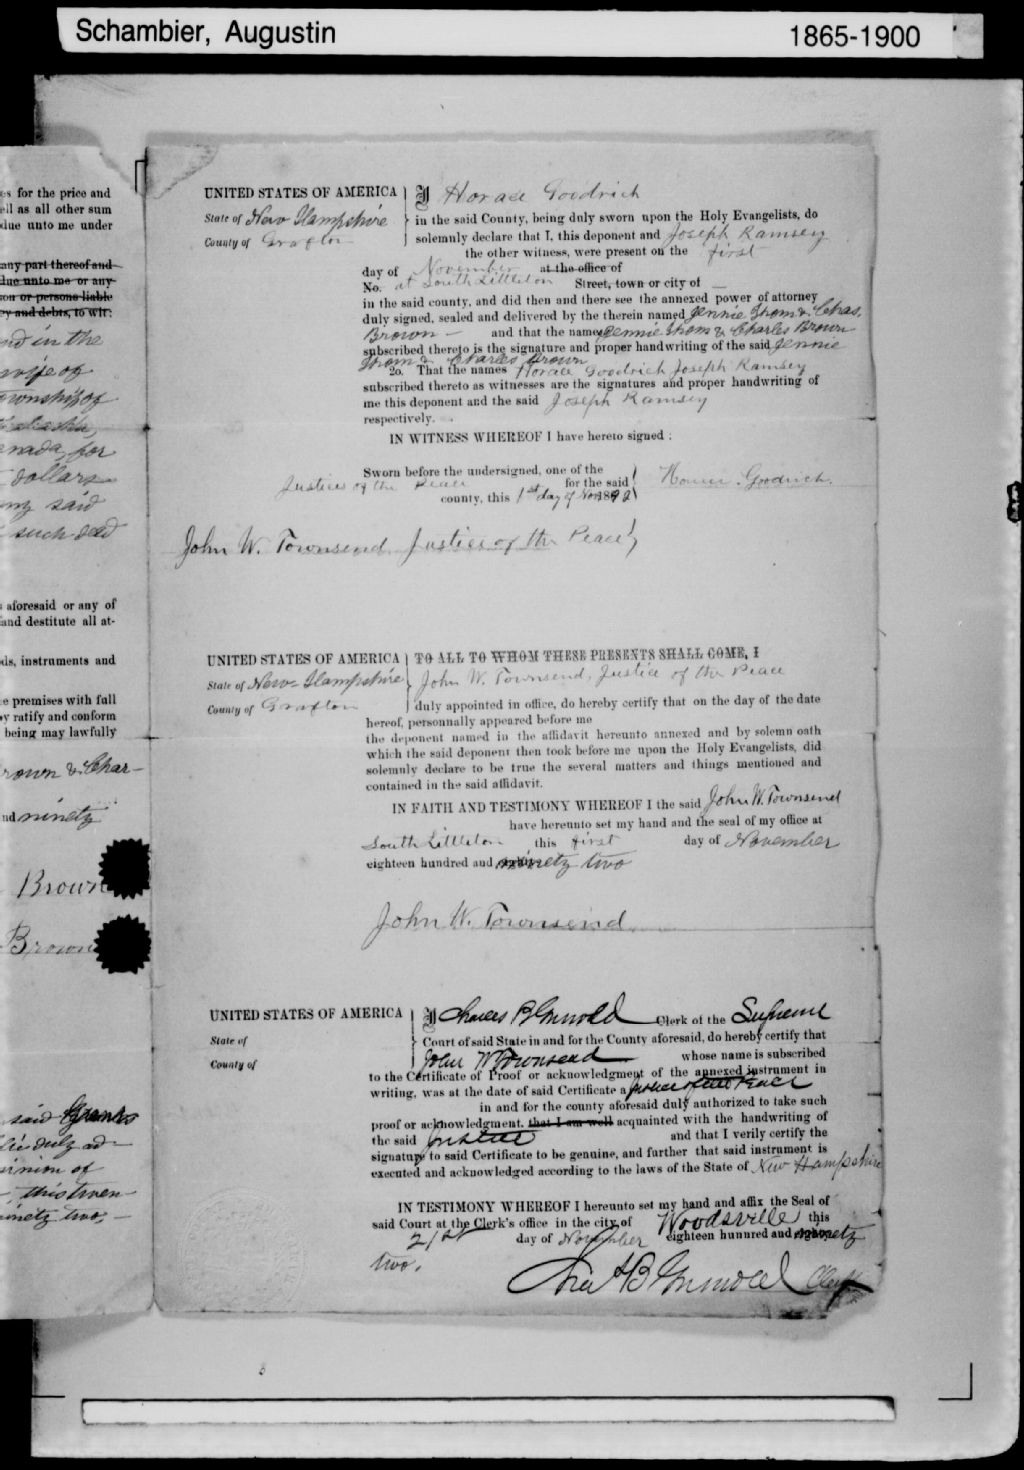 Schambier, Augustin 1865-1900
es for the price and
ell as all other sum
due unto me under
any part thereof and
due unto me or any
son or persons liable
ey and debts, to wit:
nd in the
wife of
ownship of
anada, for
dollars
said
such deed
s aforesaid or any of
and destitute all at-
ds, instruments and
e premises with full
y ratify and conform
being may lawfully
rown & Char-
nd ninety
Brown
Brown
said
lic duly ad-
inion of
, this twen-
ninety two, -
UNITED STATES OF AMERICA
State of New Hampshire
County of Grafton
I Horace Goodrich
in the said County, being duly sworn upon the Holy Evangelists, do
solemnly declare that I, this deponent and Joseph Ramsey
the other witness, were present on the first
day of November at the office of
No. at South Littleton Street, town or city of —
in the said county, and did then and there see the annexed power of attorney
duly signed, sealed and delivered by the therein named Jennie Thom & Chas.
Brown — and that the names Jennie Thom & Charles Brown
subscribed thereto is the signature and proper handwriting of the said Jennie
Thom & Charles Brown
2o. That the names Horace Goodrich Joseph Ramsey
subscribed thereto as witnesses are the signatures and proper handwriting of
me this deponent and the said Joseph Ramsey
respectively.
IN WITNESS WHEREOF I have hereto signed :
Sworn before the undersigned, one of the
Justices of the Peace for the said
county, this 1st day of Nov 1892
Goodrich.
John W. Townsend Justice of the Peace
UNITED STATES OF AMERICA
State of New Hampshire
County of Grafton
TO ALL TO WHOM THESE PRESENTS SHALL COME, I
John W. Townsend, Justice of the Peace
duly appointed in office, do hereby certify that on the day of the date
hereof, personnally appeared before me
the deponent named in the affidavit hereunto annexed and by solemn oath
which the said deponent then took before me upon the Holy Evangelists, did
solemnly declare to be true the several matters and things mentioned and
contained in the said affidavit.
IN FAITH AND TESTIMONY WHEREOF I the said John W. Townsend
have hereunto set my hand and the seal of my office at
South Littleton this first day of November
eighteen hundred and ninety two
John W. Townsend
UNITED STATES OF AMERICA
State of
County of
I Charles B Griswold Clerk of the Supreme
Court of said State in and for the County aforesaid, do hereby certify that
John W Townsend whose name is subscribed
to the Certificate of Proof or acknowledgment of the annexed instrument in
writing, was at the date of said Certificate a Justice of the Peace
in and for the county aforesaid duly authorized to take such
proof or acknowledgment. that I am well acquainted with the handwriting of
the said Justice and that I verily certify the
signature to said Certificate to be genuine, and further that said instrument is
executed and acknowledged according to the laws of the State of New Hampshire
IN TESTIMONY WHEREOF I hereunto set my hand and affix the Seal of
said Court at the Clerk's office in the city of Woodsville this
21st day of November eighteen hunnred and ninety
two.
Chas B Griswold Clerk